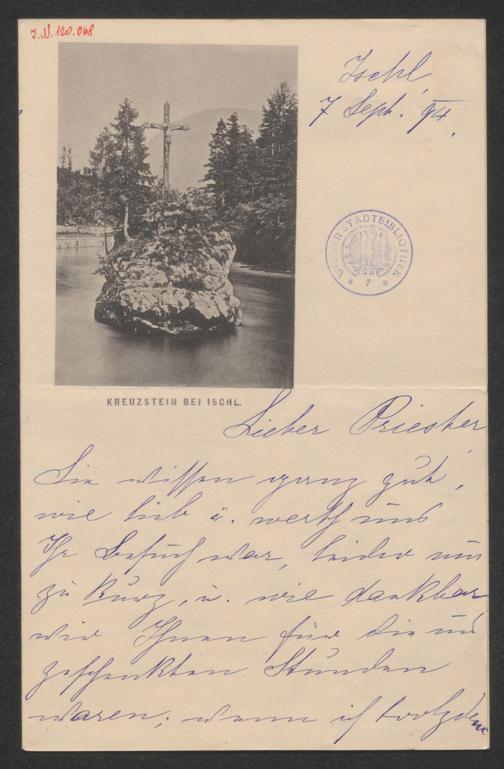 I.N. 120.068
Ischl,
7 Sept. 94.
WIENER STADTBIBLIOTHEK
* 7 *
KREUZSTEIN BEI ISCHL.
Lieber Priester,
Sie wissen ganz gut,
wie lieb u. werth uns
Ihr Besuch war, leider nur
zu kurz, u. wie dankbar
wir Ihnen für die uns
geschenkten Stunden
waren; wenn ich trotzdem